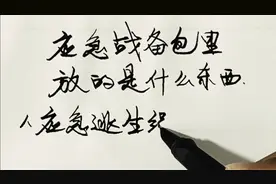 应急战备包里
放的是什么东西.
1、应急逃生绳